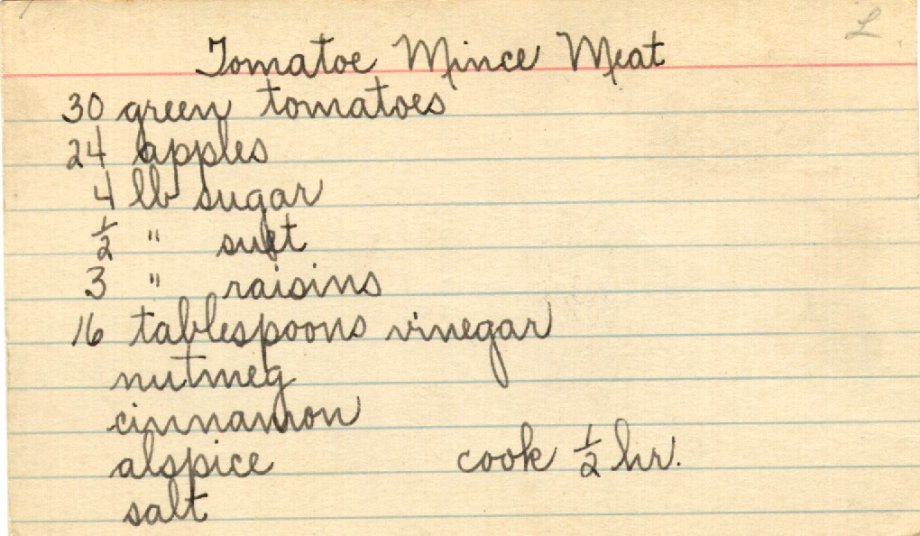 L
Tomatoe Mince Meat
30 green tomatoes
24 apples
4 lb sugar
½ " suet
3 " raisins
16 tablespoons vinegar
nutmeg
cinnamon
alspice cook ½ hr.
salt